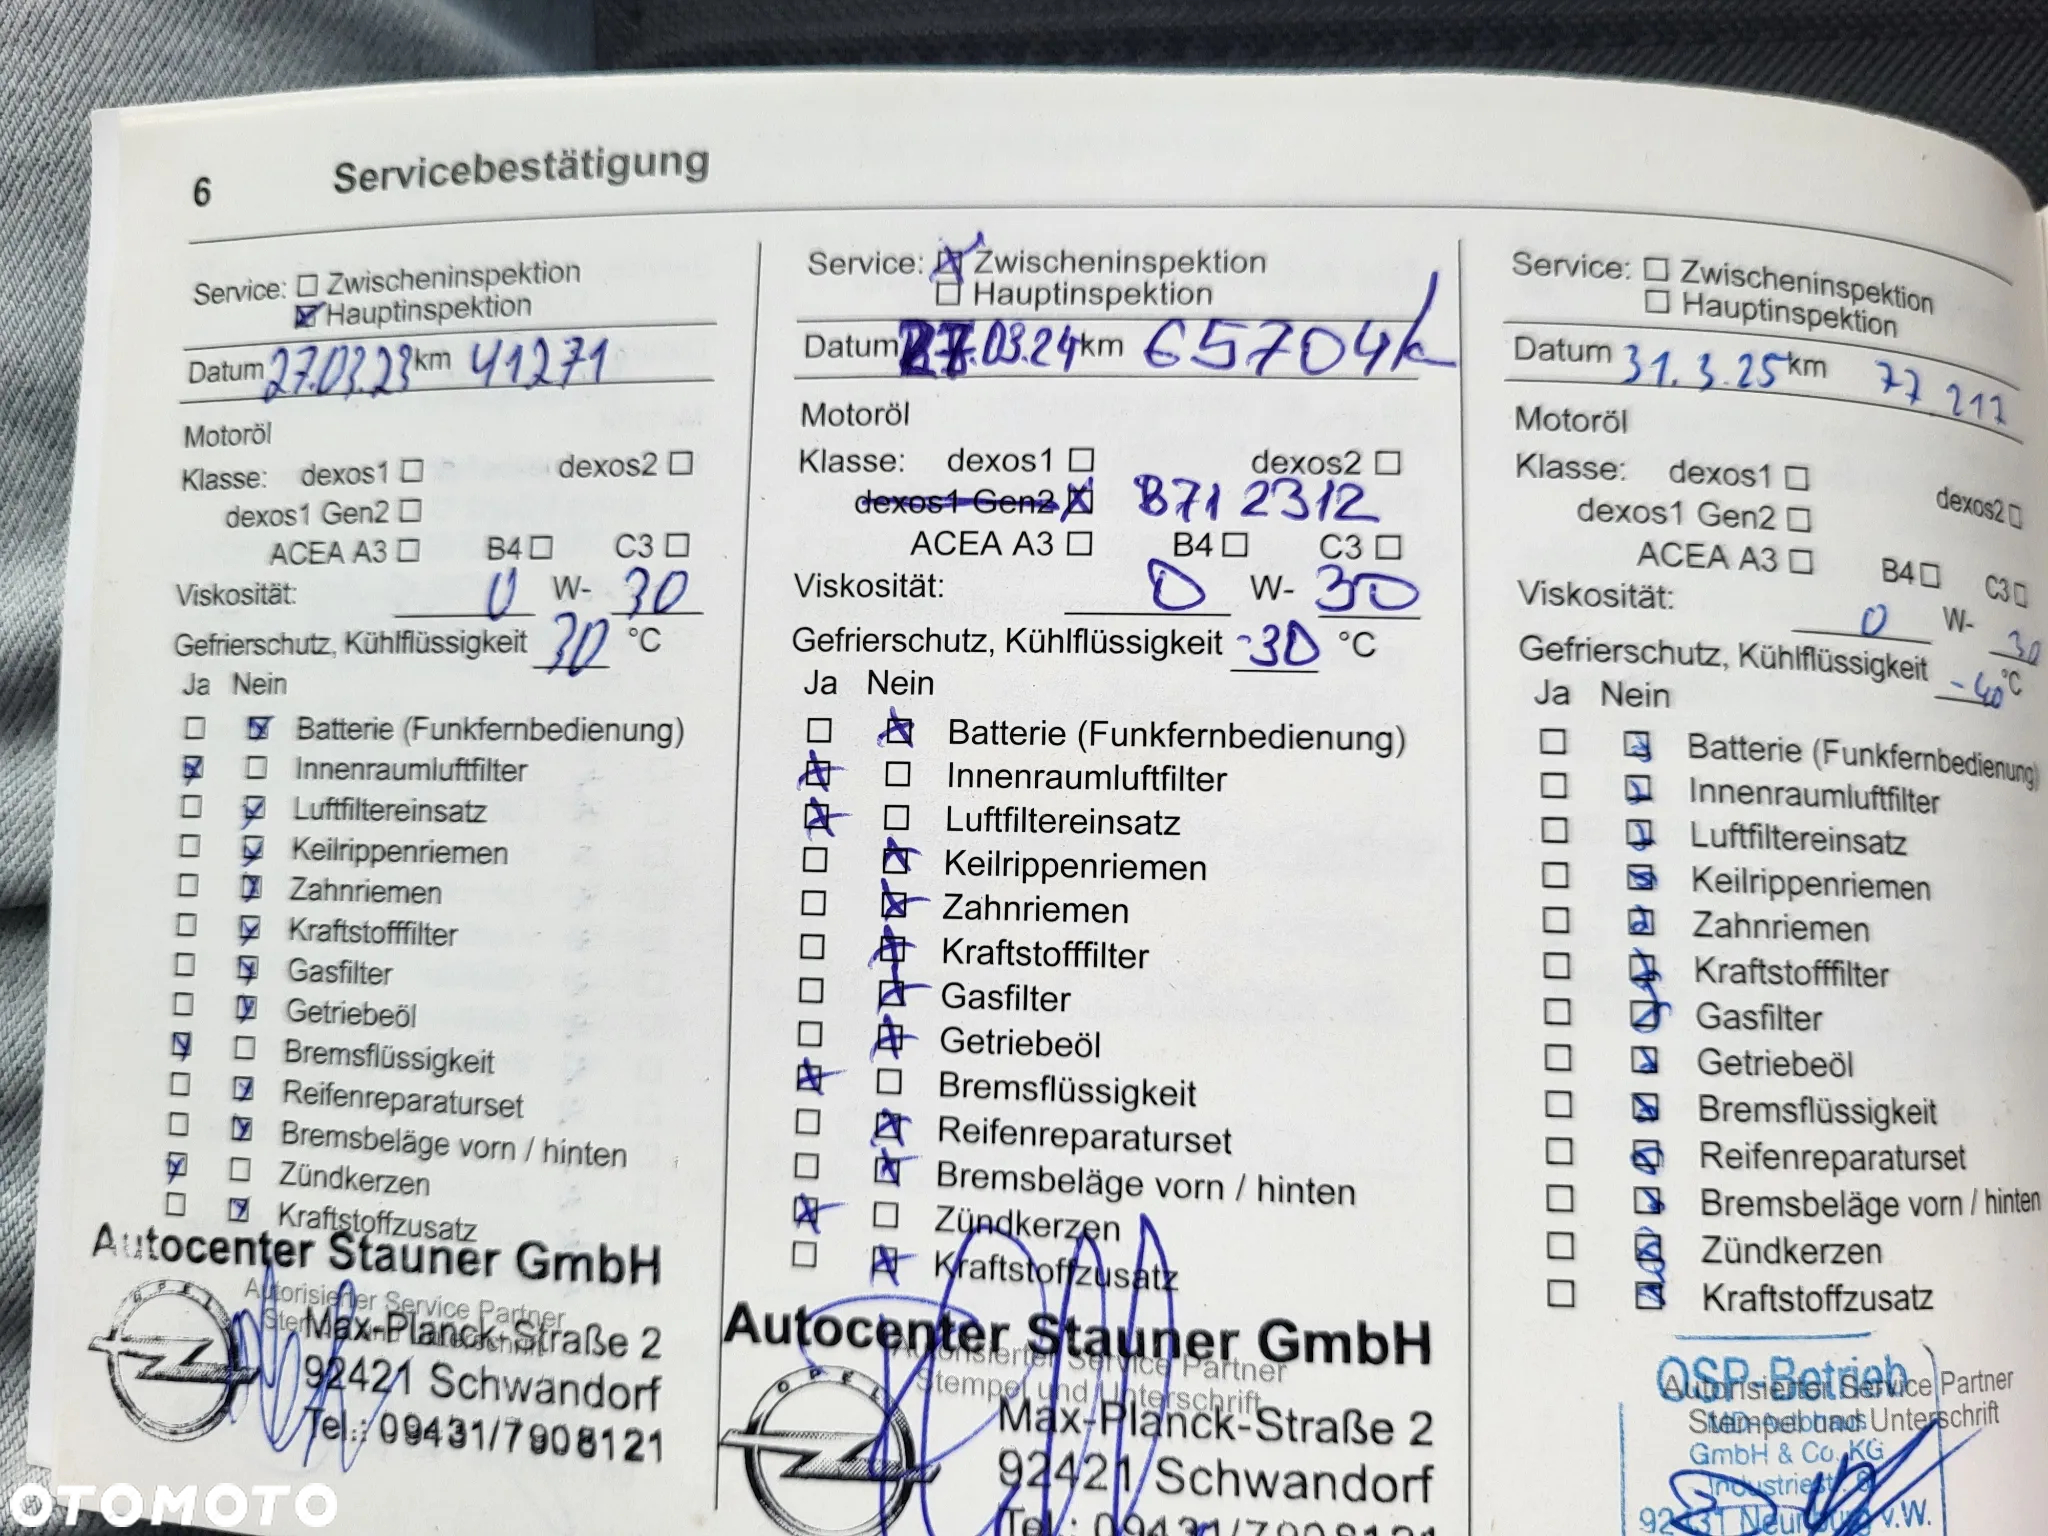 6 Servicebestätigung
Service: Zwischeninspektion
Hauptinspektion
Datum 27.03.23 km 41271
Motoröl
Klasse: dexos1 dexos2
dexos1 Gen2
ACEA A3 B4 C3
Viskosität: 0 W- 30
Gefrierschutz, Kühlflüssigkeit 30 °C
Ja Nein
Batterie (Funkfernbedienung)
Innenraumluftfilter
Luftfiltereinsatz
Keilrippenriemen
Zahnriemen
Kraftstofffilter
Gasfilter
Getriebeöl
Bremsflüssigkeit
Reifenreparaturset
Bremsbeläge vorn / hinten
Zündkerzen
Kraftstoffzusatz
Autocenter Stauner GmbH
Autorisierter Service Partner
Stempel und Unterschrift
OPEL
Max-Planck-Straße 2
92421 Schwandorf
Tel.: 09431/7908121
Service: Zwischeninspektion
Hauptinspektion
Datum 27.03.24 km 65704
Motoröl
Klasse: dexos1 dexos2
dexos1 Gen2 B71 2312
ACEA A3 B4 C3
Viskosität: 0 W- 30
Gefrierschutz, Kühlflüssigkeit -30 °C
Ja Nein
Batterie (Funkfernbedienung)
Innenraumluftfilter
Luftfiltereinsatz
Keilrippenriemen
Zahnriemen
Kraftstofffilter
Gasfilter
Getriebeöl
Bremsflüssigkeit
Reifenreparaturset
Bremsbeläge vorn / hinten
Zündkerzen
Kraftstoffzusatz
Autocenter Stauner GmbH
Autorisierter Service Partner
Stempel und Unterschrift
OPEL
Max-Planck-Straße 2
92421 Schwandorf
Tel.: 09431/7908121
Service: Zwischeninspektion
Hauptinspektion
Datum 31.3.25 km 77 217
Motoröl
Klasse: dexos1 dexos2
dexos1 Gen2
ACEA A3 B4 C3
Viskosität: 0 W- 30
Gefrierschutz, Kühlflüssigkeit -40 °C
Ja Nein
Batterie (Funkfernbedienung)
Innenraumluftfilter
Luftfiltereinsatz
Keilrippenriemen
Zahnriemen
Kraftstofffilter
Gasfilter
Getriebeöl
Bremsflüssigkeit
Reifenreparaturset
Bremsbeläge vorn / hinten
Zündkerzen
Kraftstoffzusatz
OSP-Betrieb
Autorisierter Service Partner
Stempel und Unterschrift
GmbH & Co. KG
Industriestr. 6
92431 Neunburg v.W.
OTOMOTO